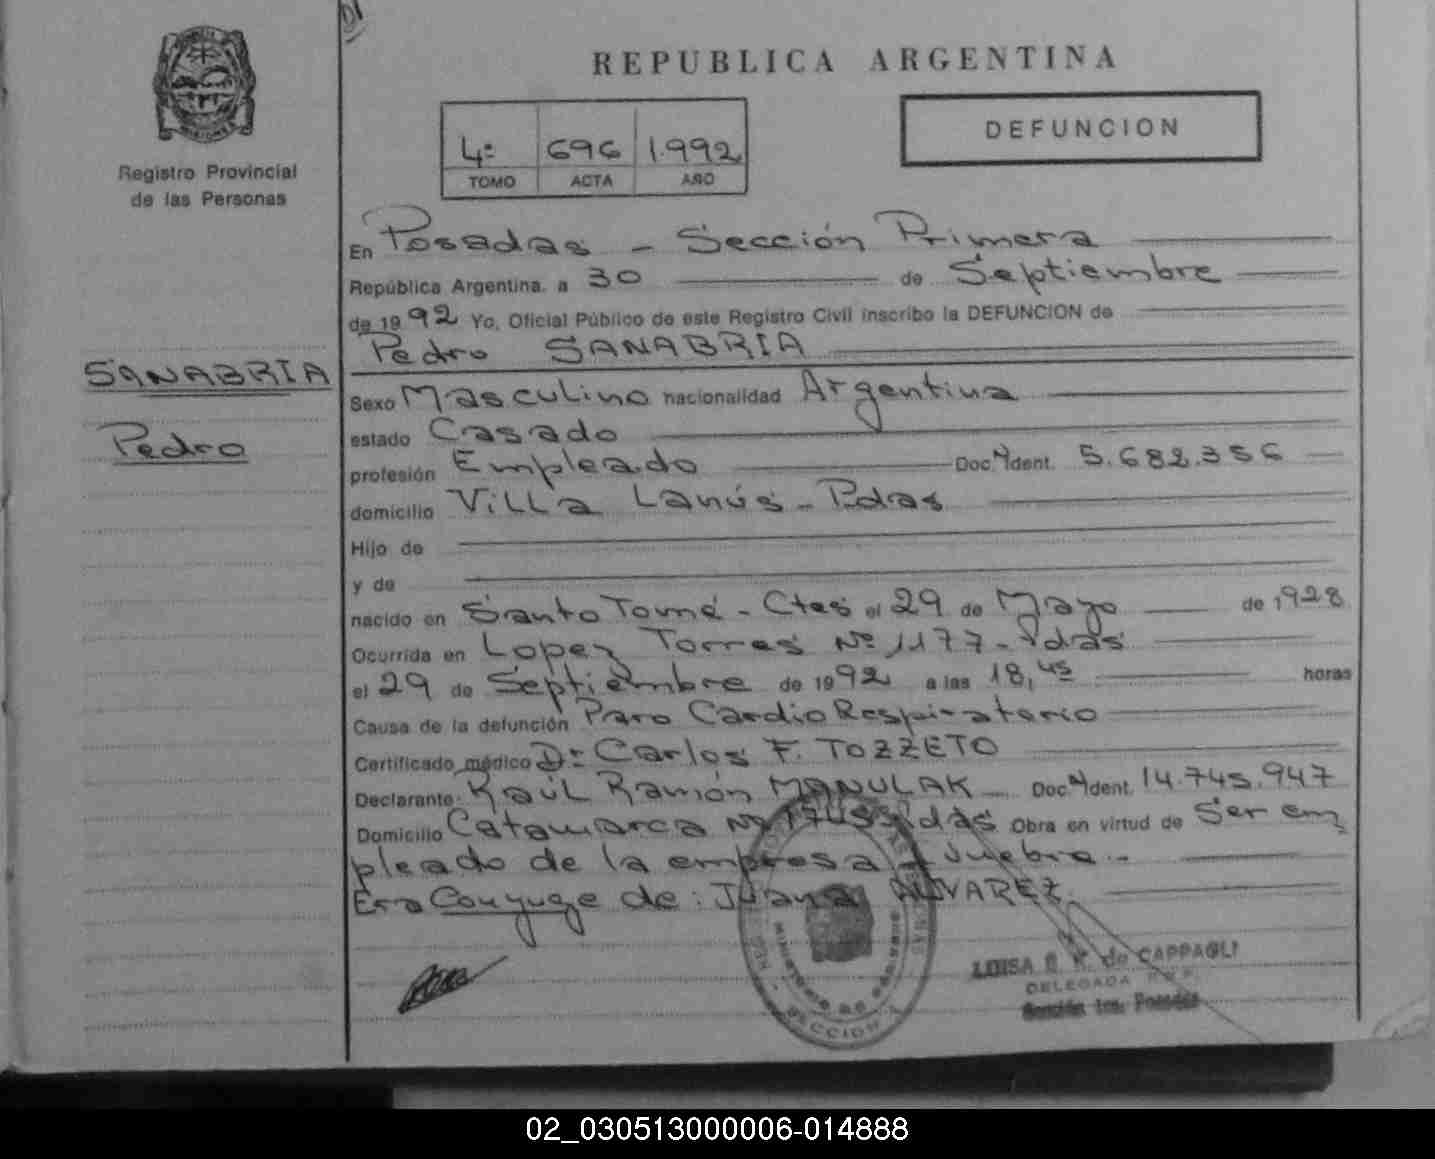 REPUBLICA ARGENTINA
MISIONES
Registro Provincial
de las Personas
4º 696 1.992
TOMO ACTA AÑO
DEFUNCION
En Posadas - Sección Primera
República Argentina. a 30 de Septiembre
de 1992 Yo, Oficial Público de este Registro Civil inscribo la DEFUNCION de
Pedro SANABRIA
SANABRIA
Pedro
Sexo Masculino nacionalidad Argentina
estado Casado
profesión Empleado Doc. Ident. 5.682.356
domicilio Villa Lanús - Pdas
Hijo de
y de
nacido en Santo Tomé - Ctes el 29 de Mayo de 1928
Ocurrida en Lopez Torres Nº 1177 - Pdas
el 29 de Septiembre de 1992 a las 18,45 horas
Causa de la defunción Paro Cardio Respiratorio
Certificado médico Dr Carlos F. TOZZETO
Declarante Raúl Ramón MANULAK Doc. Ident. 14.745.947
Domicilio Catamarca Nº Pdas Obra en virtud de Ser em
pleado de la empresa
Era Conyuge de: Juana ALVAREZ.
LUISA de CAPPAGLI
DELEGADA
Sección 1ra. Posadas
SECCION 1
02_030513000006-014888